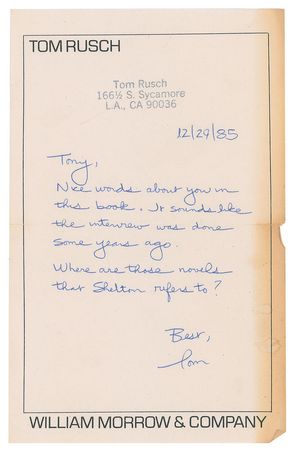 TOM RUSCH
Tom Rusch
166½ S. Sycamore
L.A., CA 90036
12/29/85
Tony,
Nice words about you in
this book. It sounds like
the interview was done
some years ago.
Where are those novels
that Shelton refers to?
Best,
Tom
WILLIAM MORROW & COMPANY